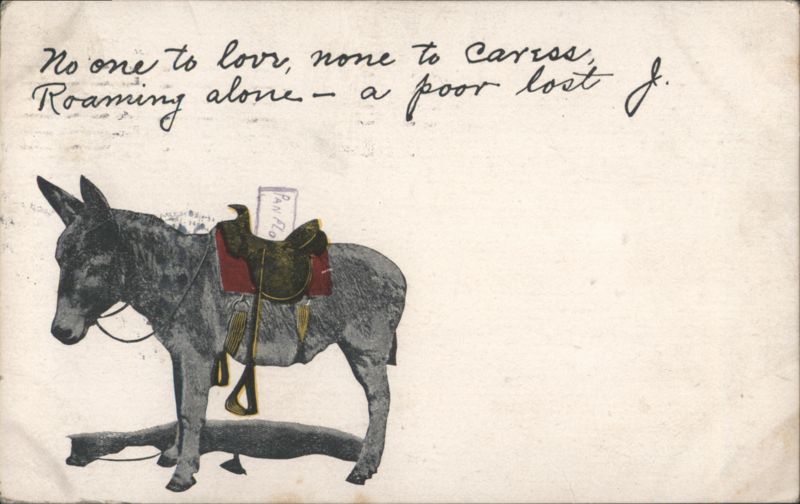 No one to love, none to caress,
Roaming alone — a poor lost J.